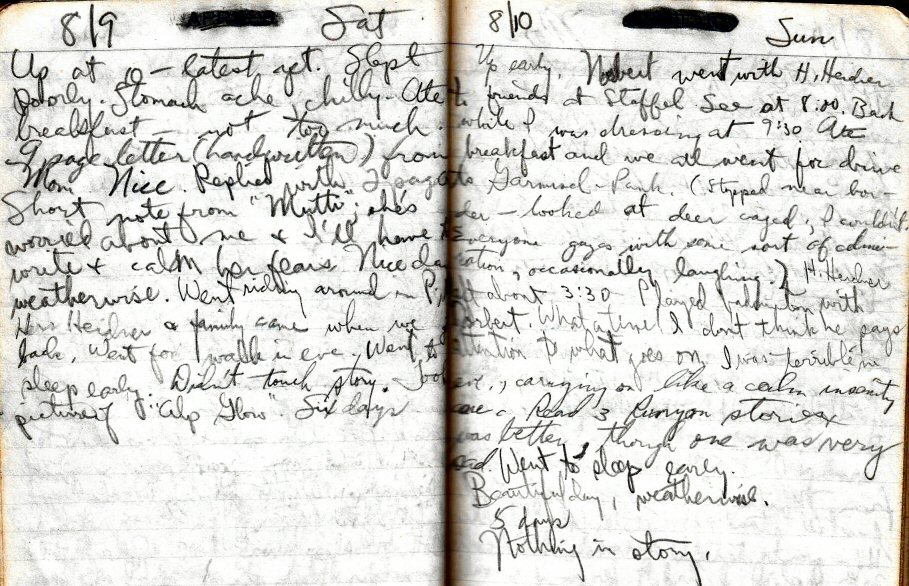 8/9 Sat
Up at 10 - latest yet. Slept
poorly. Stomach ache, chilly. Ate
breakfast - not too much.
9 page letter (handwritten) from
Mom. Nice. Replied with 2 page
Short note from "Mutti"; she's
worried about me & I'll have to
write & calm her fears. Nice day
weatherwise. Went riding around in
Herr Heidner & family came when we
back. Went for walk in eve. Went to
sleep early. Didn't touch story. Took
picture of "Alp Glow". Six days
8/10 Sun
Up early. Norbert went with H. Heidner
to friends at Staffel See at 8:00. Back
while I was dressing at 9:30 Ate
breakfast and we all went for drive
to Garmisch-Park. (Stopped near bor-
der - looked at deer caged, I couldn't.
Everyone gazes with some sort of admi-
ration, occasionally laughing.) H. Heidner
left about 3:30 Played badminton with
Norbert. What a time! I don't think he pays
attention to what goes on. I was terrible in
eve., carrying on like a calm insanity
case. Read 3 Runyon stories
was better, though one was very
sad. Went to sleep early.
Beautiful day, weatherwise.
5 days
Nothing in story.